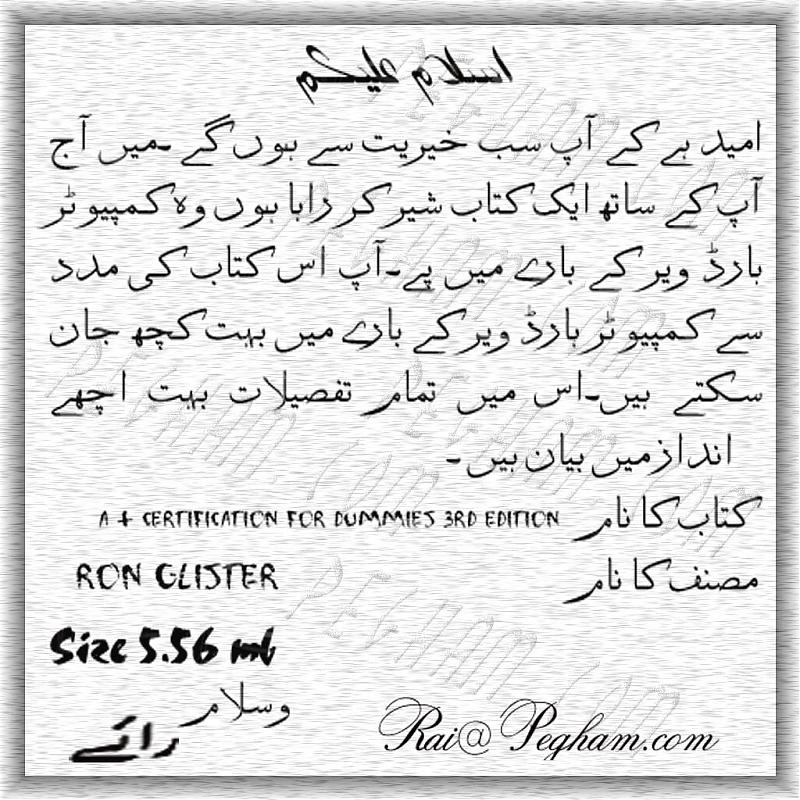 اسلام علیکم
امید ہے کے آپ سب خیریت سے ہوں گے ۔میں آج
آپ کے ساتھ ایک کتاب شیر کر راہا ہوں وہ کمپیوٹر
ہارڈ ویر کے بارے میں ہے۔آپ اس کتاب کی مدد
سے کمپیوٹر ہارڈ ویر کے بارے میں بہت کچھ جان
سکتے ہیں۔اس میں تمام تفصیلات بہت اچھے
انداز میں بیان ہیں ۔
کتاب کا نام A + CERTIFICATION FOR DUMMIES 3RD EDITION
مصنف کا نام RON GLISTER
Size 5.56 mb
وسلام
رائے
Rai@Pegham.com